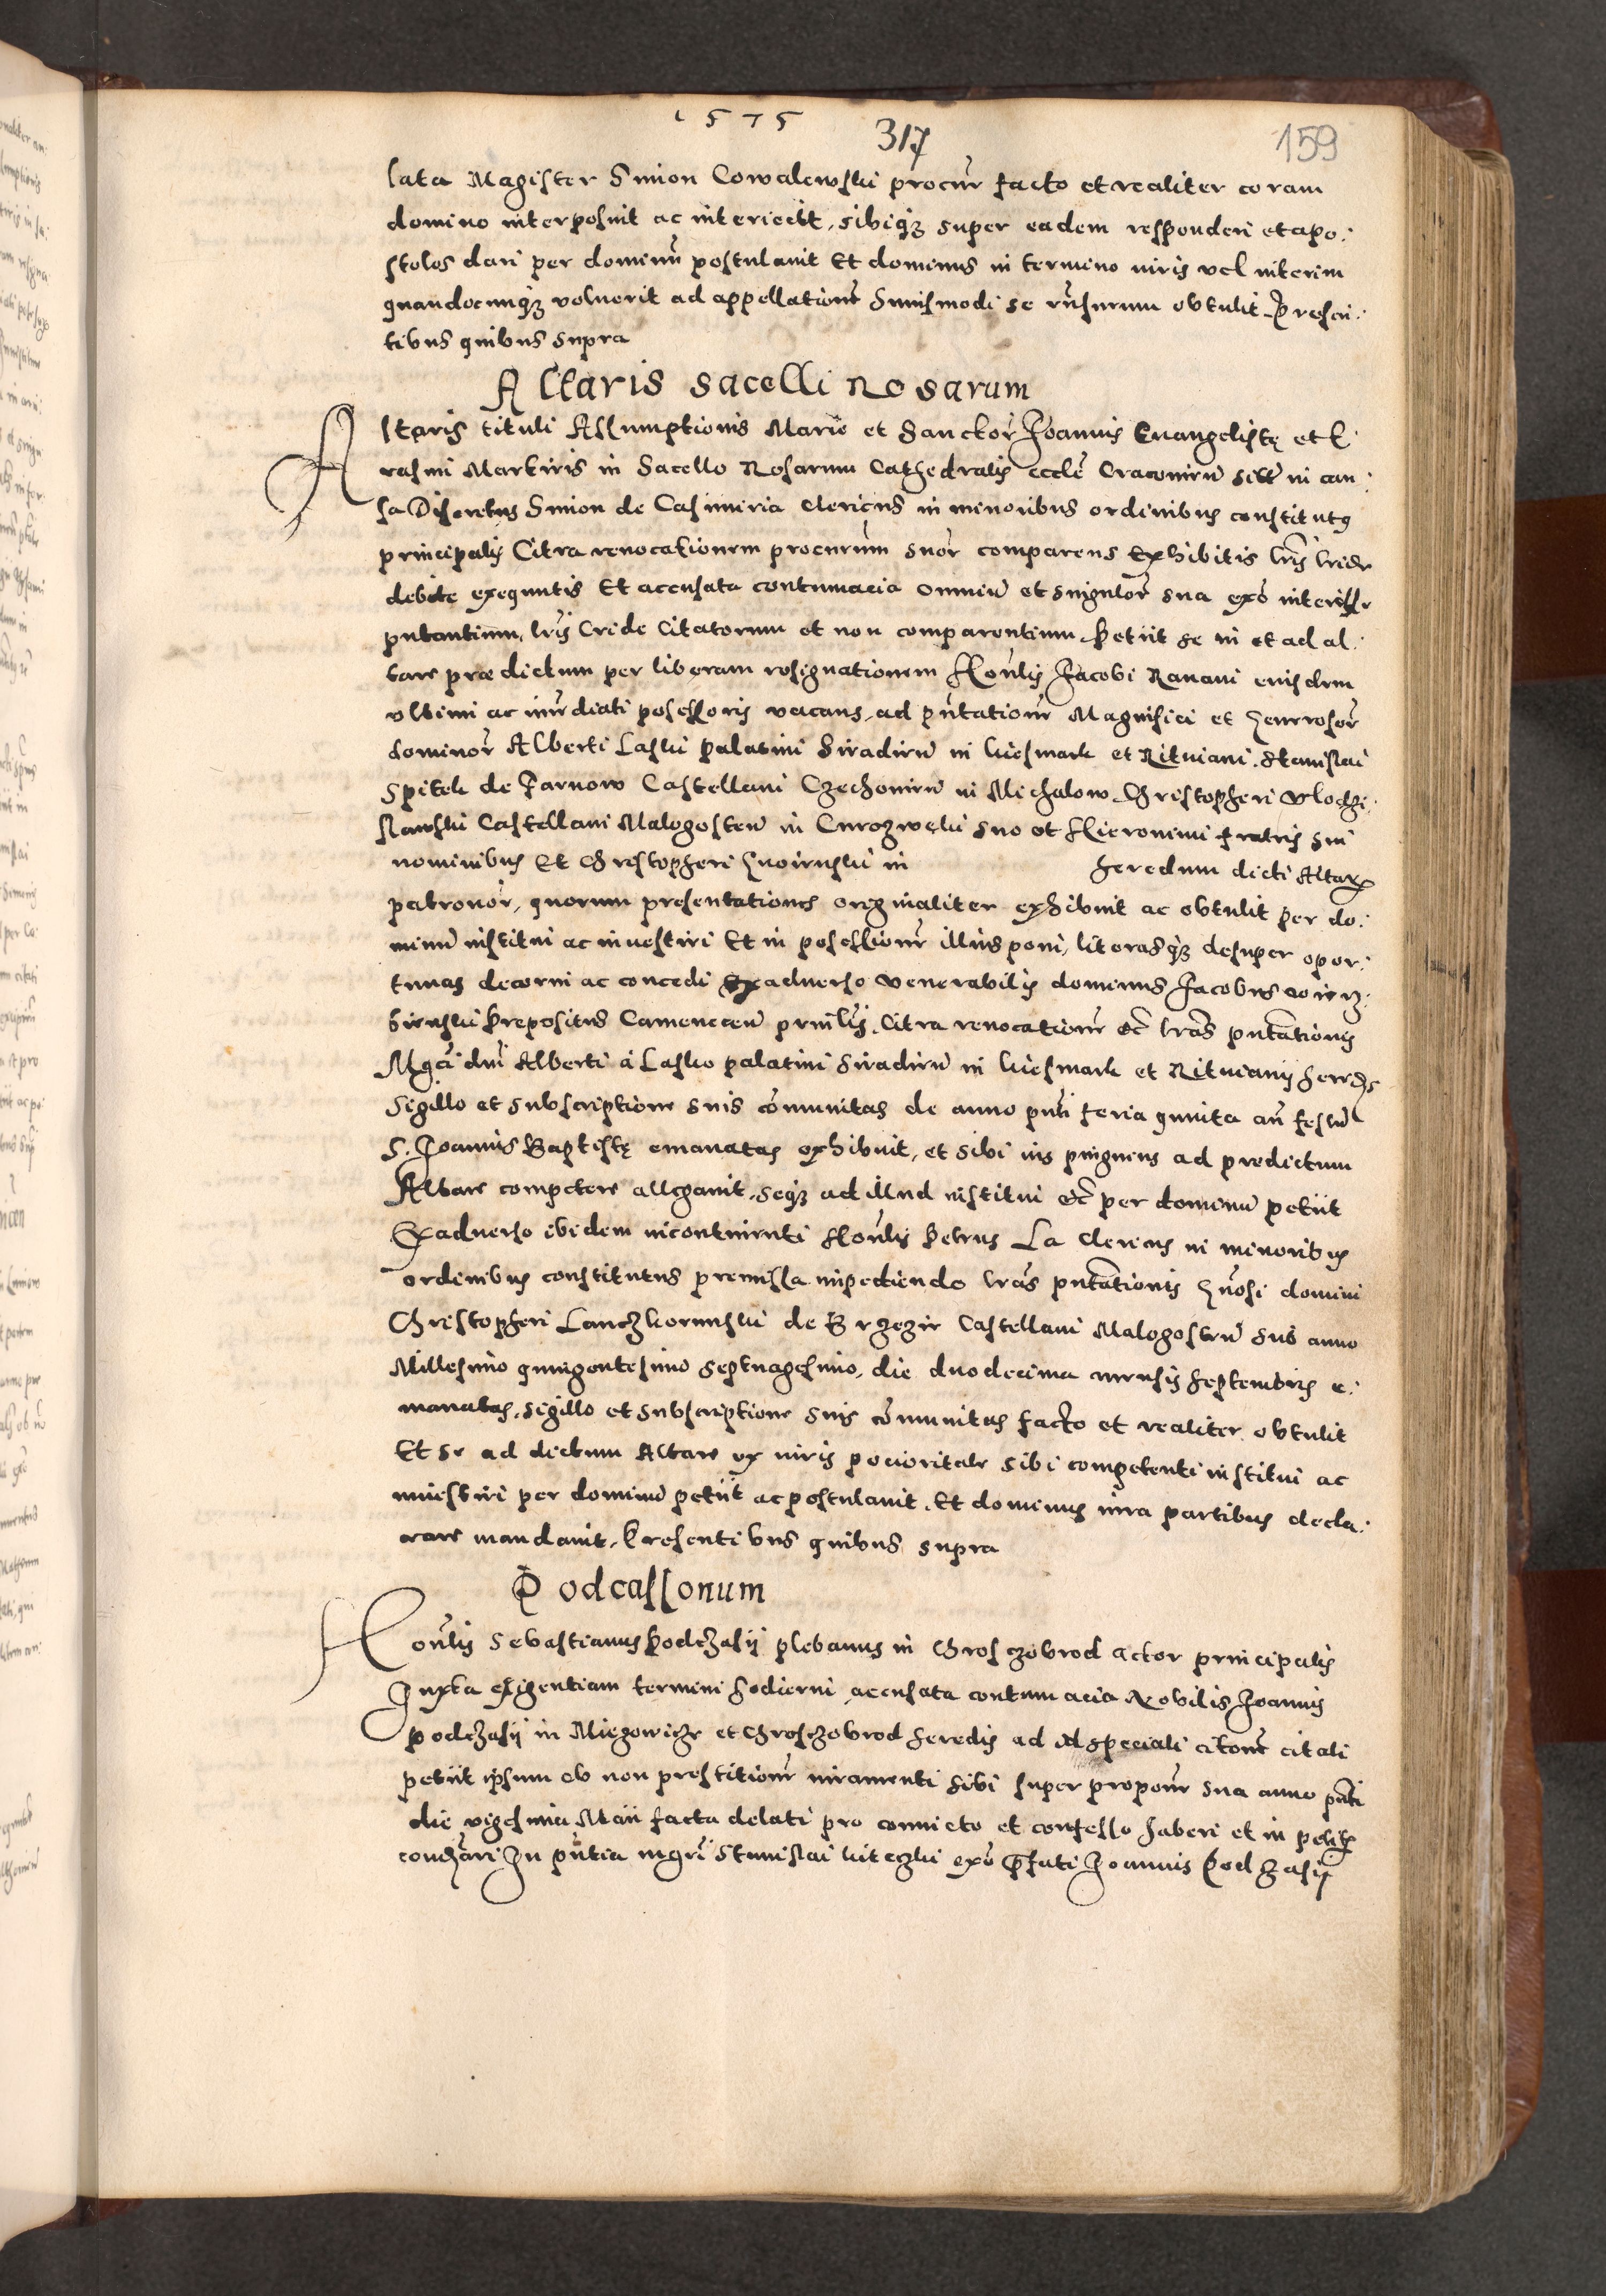 1575
317
159
lata Magister Simon Cowalewski procur̃ facto et realiter coram
domino interposuit ac interiecit, sibiq3 super eadem responderi et apo:
stolos dari per dominũ postulauit Et dominus in termino iuris vel interim
quandocunq3 voluerit ad appellationẽ huiusmodi se rñsurum obtulit. Presen:
tibus quibus supra
Altaris sacelli Rosarum
Altaris tituli Assumptionis Marie et Sanctor̃ Joannis Euangelistę et E
rasmi Martiris in Sacello Rosarum Cathedralis eccle͂ Cracouien̄ siti in cau:
sa Discretus Simon de Casimiria clericus in minoribus ordinibus constitutus
principalis Citra reuocationem procurum̃ suor̃ comparens Exhibitis lr̃is cride
debite exequutis Et accusata contumacia omniũ et singulor̃ sua exõ interesse
putantium, lr̃is cride citatorum et non comparentium Petiit se in et ad al:
tare prædictum per liberam resignationem Honlis Jacobi Ranaui eiusdem
vltimi ac immediati possessoris vacans, ad pñtationem Magnifici et Generosor̃
dominor̃ Alberti Laski palatini Siradien̄ in Kiesmark et Rituiani, Stanislai
Spitek de Jarnow Castellani Czechouien̄ in Michalow Christopheri Vlodzi:
slawski Castellani Malogosten̄ in Curozweki suo et Hieronimi fratris sui
nominibus Et Christopheri in heredum dicti Altaris
patronor̃, quorum presentationes originaliter exhibuit ac obtulit per do:
minũ institui ac inuestiri Et in possessionem illius poni, literasq3 desuper opor:
tunas decerni ac concedi Ex aduerso venerabilis dominus Jacobus Wierz:
bienski Prepositus Camenecen̄ prinlis, Citra reuocationem etc̃ lr̃as pñtationis
Mgci dni Alberti à Lasko palatini Siradien̄ in Kiesmark et Rituianij heredis
Sigillo et subscriptione suis cõmunitas de anno pñti feria quinta añ festũ
S. Joannis Baptistę emanatas exhibuit, et sibi ius pinguius ad predictum
Altare competere allegauit, seq3 ad illud institui etc̃ per dominũ petiit
Ex aduerso ibidem incontinenti Honlis Petrus La clericus in minoribus
ordinibus constitutus premissa impediendo lr̃as pñtationis Gñosi domini
Christopheri Lanczkorunski de Brzezie Castellani Malogosten̄ sub anno
Millesimo quingentesimo septuagesimo, die duodecima mensis Septembris e:
manatas, sigillo et subscriptione suis cõmunitas facto et realiter obtulit
Et se ad dictum Altare ex iuris pocioritate sibi competenti institui ac
inuestiri per dominũ petiit ac postulauit. Et dominus iura partibus decla:
rare mandauit. Presentibus quibus supra
Podcassonum
Honlis Sebastianus Podczasij plebanus in Chrosczobrod actor principalis
Juxta exigentiam termini hodierni accusata contumacia Nobilis Joannis
Podczasij in Miegowicze et Chrosczobrod heredis ad id speciali citone citati
petiit ipsum ob non prestitionem iuramenti sibi super propõne sua anno pñti
die vigesima Maii facta delati pro conuicto et confesso haberi et in petitis
condẽnari In pñtia mgri Stanislai exõ p̃fati Joannis Podczasij